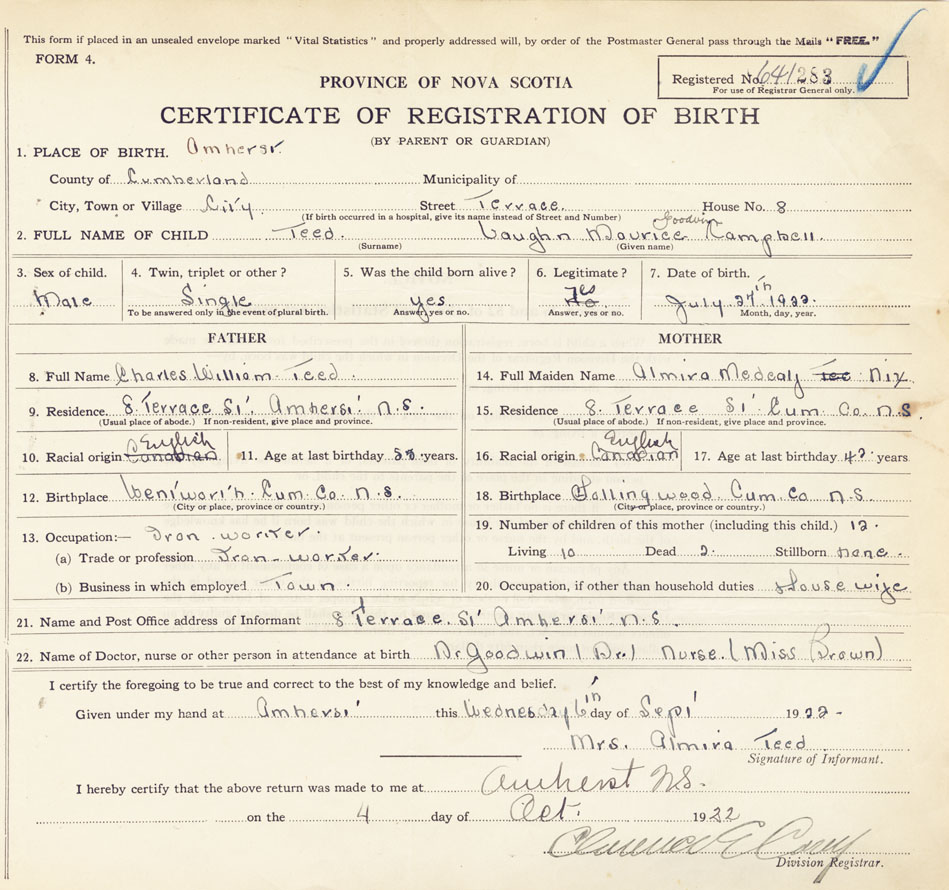 This form if placed in an unsealed envelope marked "Vital Statistics" and properly addressed will, by order of the Postmaster General pass through the Mails "FREE."
FORM 4.
Registered No. 641283
For use of Registrar General only.
PROVINCE OF NOVA SCOTIA
CERTIFICATE OF REGISTRATION OF BIRTH
(BY PARENT OR GUARDIAN)
1. PLACE OF BIRTH. Amherst
County of Cumberland Municipality of
City, Town or Village City Street Terrace House No. 8
(If birth occurred in a hospital, give its name instead of Street and Number)
Goodwin
2. FULL NAME OF CHILD Teed Vaughn Maurice Campbell
(Surname) (Given name)
3. Sex of child. 4. Twin, triplet or other? 5. Was the child born alive? 6. Legitimate? 7. Date of birth.
Male Single yes. Yes July 27th 1922.
To be answered only in the event of plural birth. Answer, yes or no. Answer, yes or no. Month, day, year.
FATHER MOTHER
8. Full Name Charles William Teed 14. Full Maiden Name Almira Medealy Tee Nix
9. Residence. 8 Terrace St. Amherst N.S. 15. Residence 8 Terrace St. Cum. Co. N.S
(Usual place of abode.) If non-resident, give place and province. (Usual place of abode.) If non-resident, give place and province.
English English
10. Racial origin Canadian 11. Age at last birthday years. 16. Racial origin Canadian 17. Age at last birthday 42 years
12. Birthplace Wentworth Cum. Co. N.S. 18. Birthplace Collingwood Cum. Co N.S.
(City or place, province or country.) (City or place, province or country.)
13. Occupation:— Iron worker 19. Number of children of this mother (including this child.) 12.
(a) Trade or profession Iron-worker. Living 10 Dead 2. Stillborn none.
(b) Business in which employed Town. 20. Occupation, if other than household duties House wife
21. Name and Post Office address of Informant 8 Terrace. St Amherst N.S.
22. Name of Doctor, nurse or other person in attendance at birth Dr Goodwin (Dr.) Nurse. (Miss Brown)
I certify the foregoing to be true and correct to the best of my knowledge and belief.
Given under my hand at Amherst this Wednesday 6th day of Sept 1922-
Mrs. Almira Teed
Signature of Informant.
I hereby certify that the above return was made to me at Amherst N.S.
on the 4 day of Oct. 1922
Division Registrar.